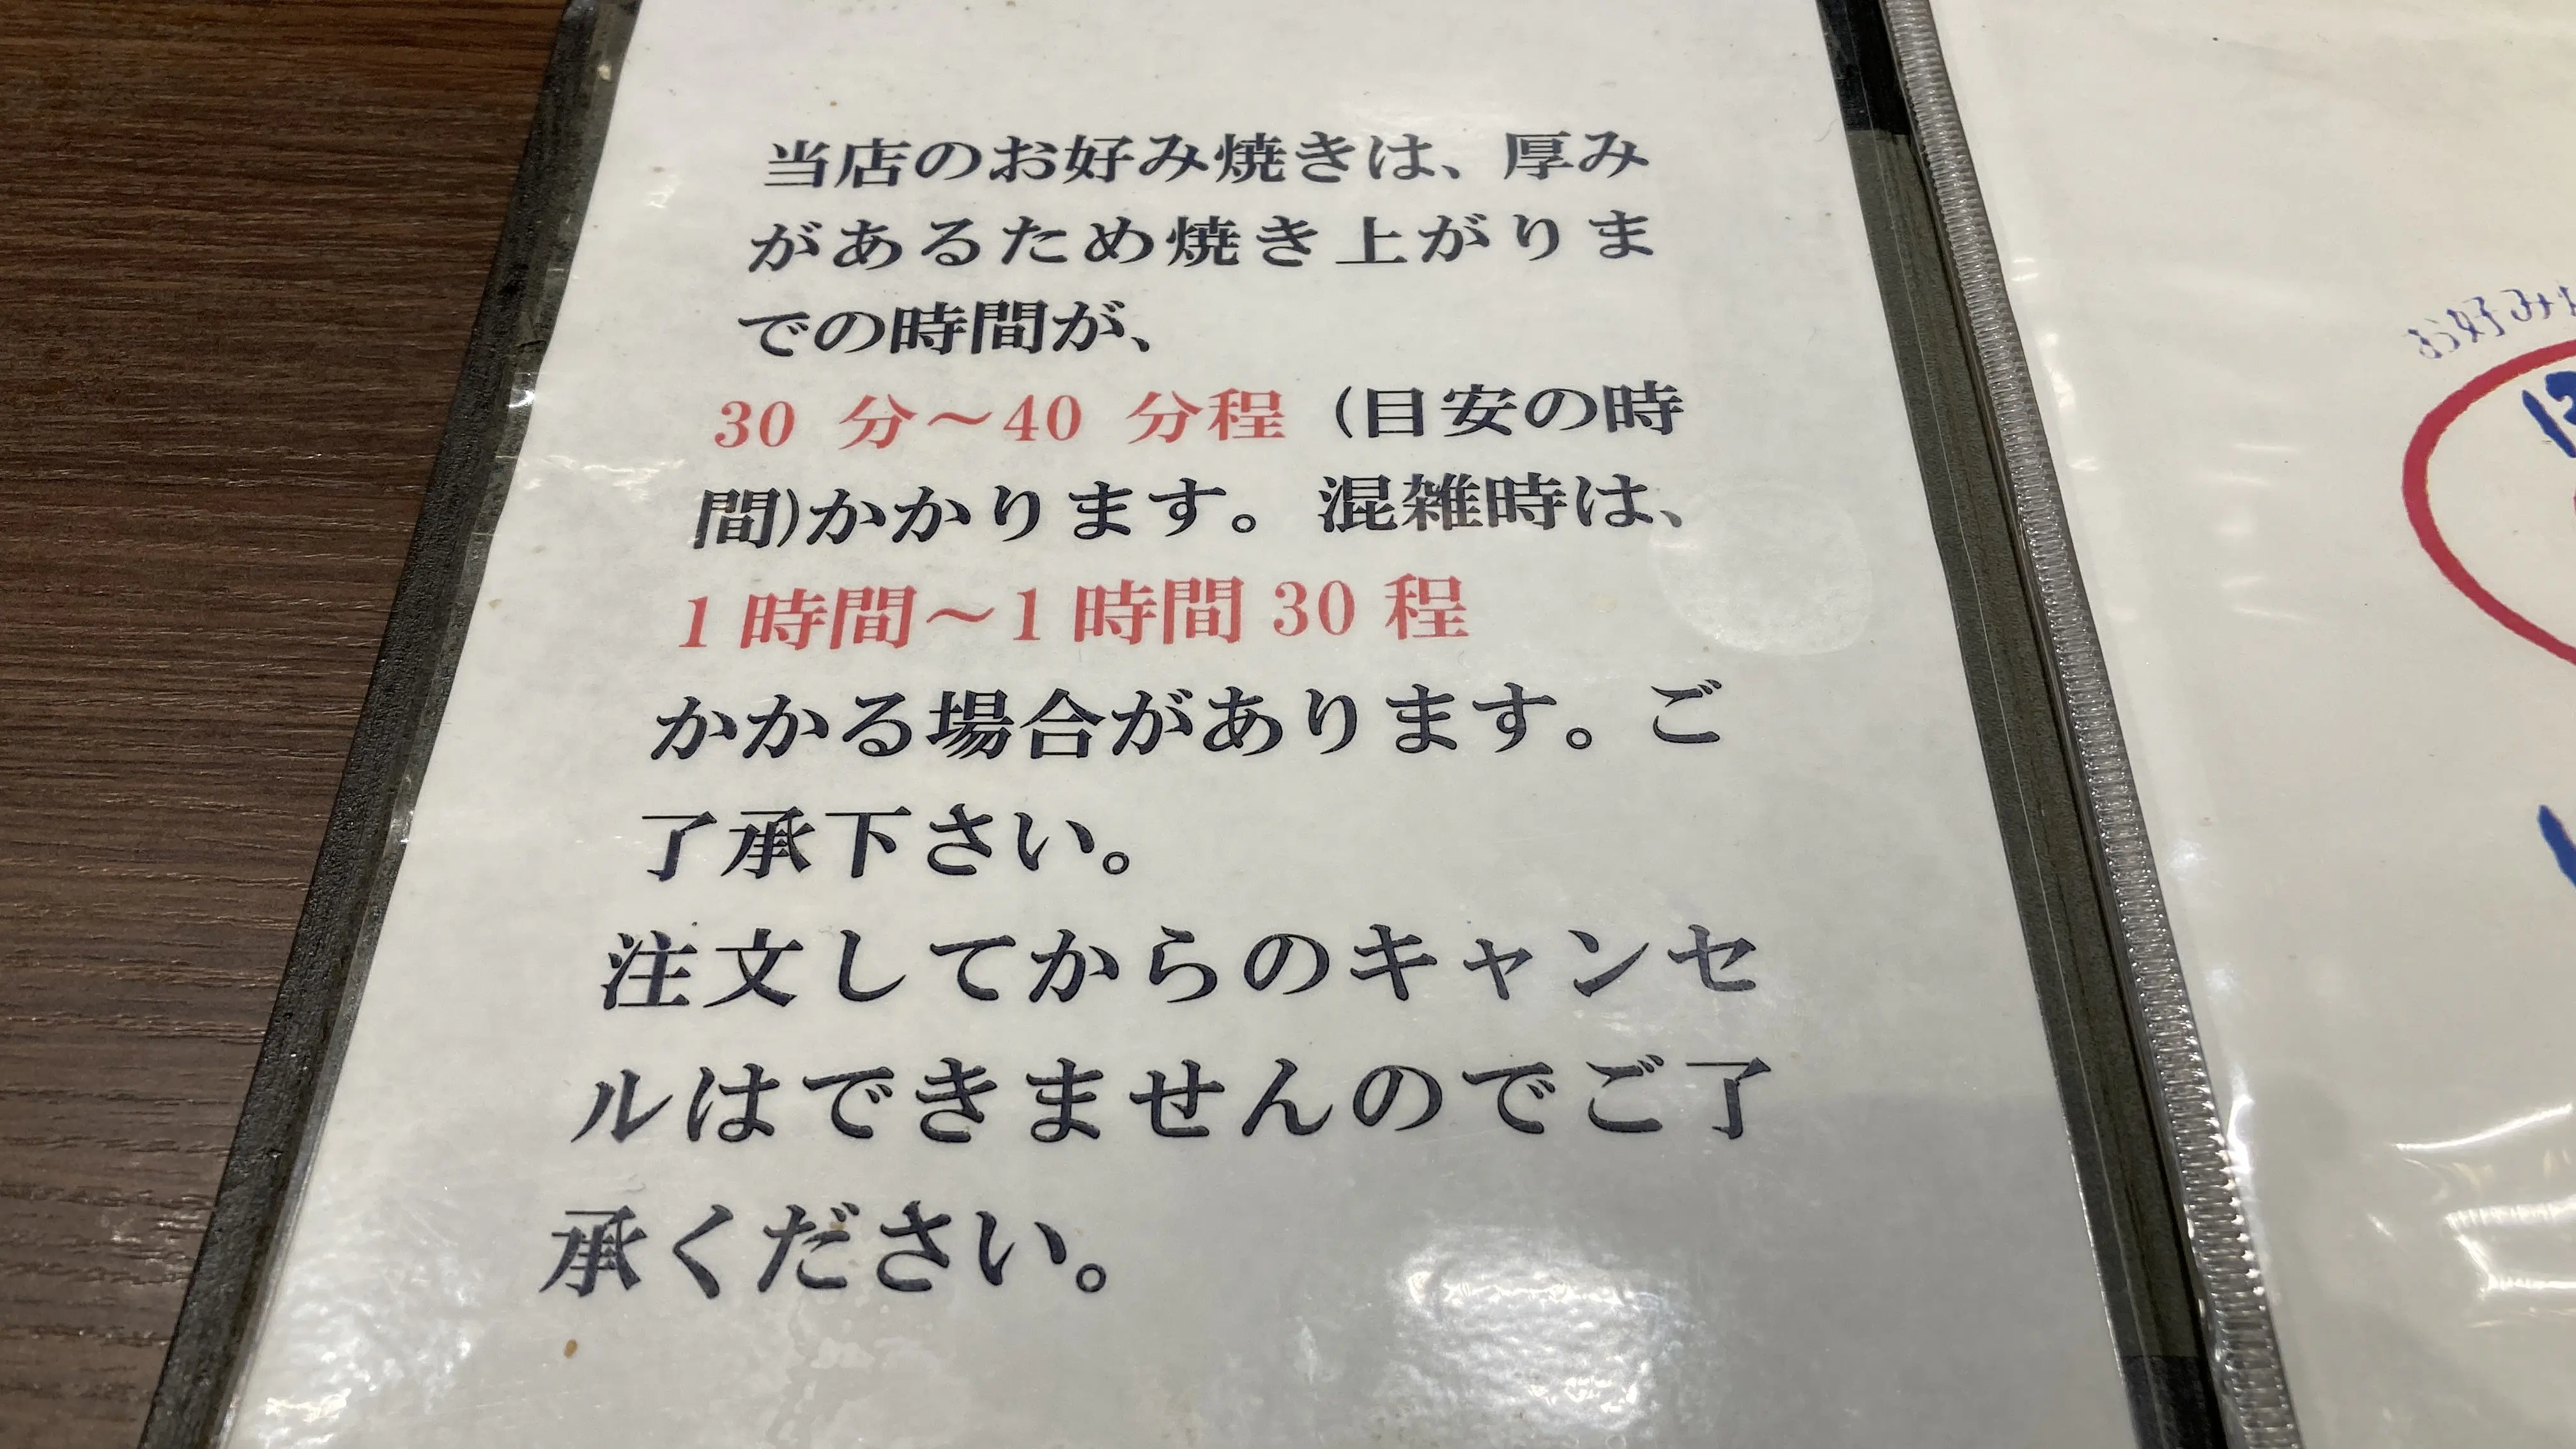 当店のお好み焼きは、厚み
があるため焼き上がりま
での時間が、
30 分～40 分程（目安の時
間)かかります。混雑時は、
1 時間～1 時間 30 程
かかる場合があります。ご
了承下さい。
注文してからのキャンセ
ルはできませんのでご了
承ください。
お好み